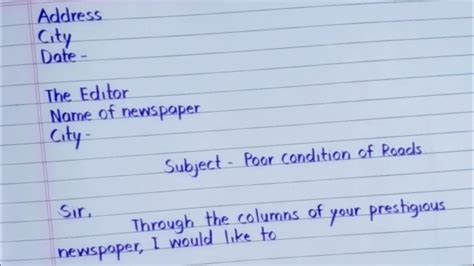 Address
City
Date -
The Editor
Name of newspaper
City -
Subject - Poor condition of Roads
Sir,
Through the columns of your prestigious
newspaper, I would like to